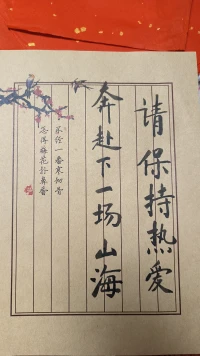 请保持热爱
奔赴下一场山海
不经一番寒彻骨
怎得梅花扑鼻香